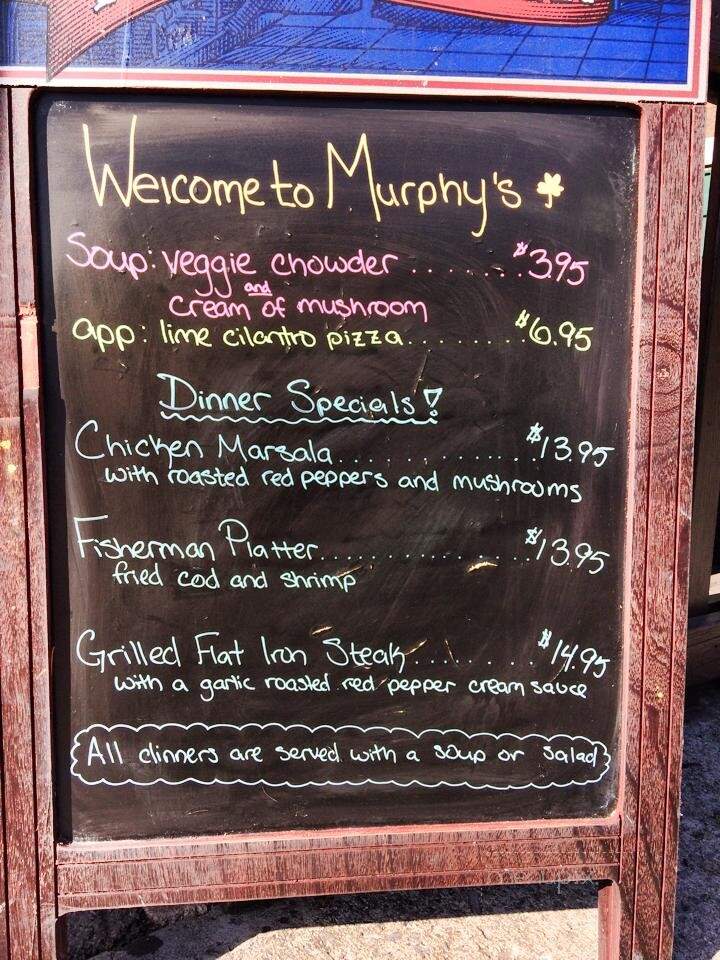 Welcome to Murphy's
Soup: veggie chowder ....... $3.95
and
cream of mushroom
app: lime cilantro pizza........ $6.95
Dinner Specials!
Chicken Marsala............... $13.95
with roasted red peppers and mushrooms
Fisherman Platter............... $13.95
fried cod and shrimp
Grilled Flat Iron Steak......... $14.95
with a garlic roasted red pepper cream sauce
All dinners are served with a soup or salad